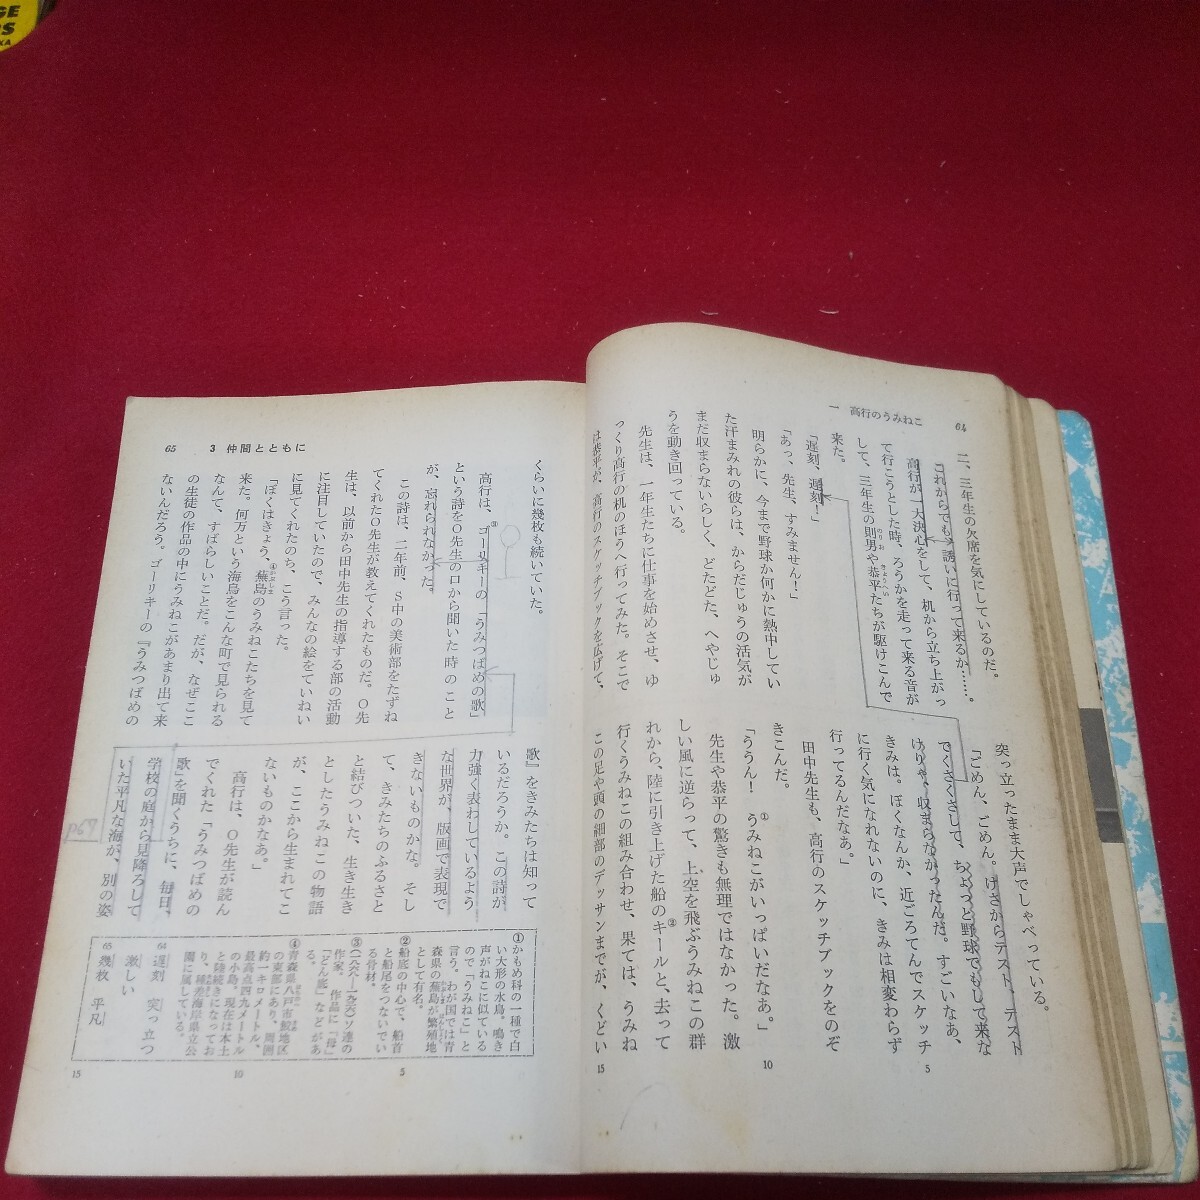 64
一 高行のうみねこ
二、三年生の欠席を気にしているのだ。
これからでも、誘いに行って来るか……。
高行が一大決心をして、机から立ち上がっ
て行こうとした時、ろうかを走って来る音が
して、三年生の則男や恭平たちが駆けこんで
来た。
「遅刻、遅刻！」
「あっ、先生、すみません！」
明らかに、今まで野球か何かに熱中してい
た汗まみれの彼らは、からだじゅうの活気が
まだ収まらないらしく、どたどた、へやじゅ
うを動き回っている。
先生は、一年生たちに仕事を始めさせ、ゆ
っくり高行の机のほうへ行ってみた。そこで
は恭平が、高行のスケッチブックを広げて、
突っ立ったまま大声でしゃべっている。
「ごめん、ごめん。けさからテスト、テスト
でくさくさして、ちょっと野球でもして来な
けりゃ、収まらなかったんだ。すごいなあ、
きみは。ぼくなんか、近ごろてんでスケッチ
に行く気になれないのに、きみは相変わらず
行ってるんだなあ。」
田中先生も、高行のスケッチブックをのぞ
きこんだ。
「ううん！ うみねこ①がいっぱいだなあ。」
先生や恭平の驚きも無理ではなかった。激
しい風に逆らって、上空を飛ぶうみねこの群
れから、陸に引き上げた船のキール②と、去って
行くうみねこの組み合わせ、果ては、うみね
この足や頭の細部のデッサンまでが、くどい
5
10
15
65
3 仲間とともに
くらいに幾枚も続いていた。
高行は、ゴーリキー③の「うみつばめの歌」
という詩をO先生の口から聞いた時のこと
が、忘れられなかった。
この詩は、二年前、S中の美術部をたずね
てくれたO先生が教えてくれたものだ。O先
生は、以前から田中先生の指導する部の活動
に注目していたので、みんなの絵をていねい
に見てくれたのち、こう言った。
「ぼくはきょう、蕪島④のうみねこたちを見て
来た。何万という海鳥をこんな町で見られる
なんて、すばらしいことだ。だが、なぜここ
の生徒の作品の中にうみねこがあまり出て来
ないんだろう。ゴーリキーの『うみつばめの
歌』をきみたちは知って
いるだろうか。この詩が
力強く表わしているよう
な世界が、版画で表現で
きないものかな。そし
て、きみたちのふるさと
と結びついた、生き生き
としたうみねこの物語
が、ここから生まれてこ
ないものかなあ。」
高行は、O先生が読ん
でくれた「うみつばめの
歌」を聞くうちに、毎日、
学校の庭から見降ろして
いた平凡な海が、別の姿
p67
①かもめ科の一種で白
い大形の水鳥。鳴き
声がねこに似ている
ので「うみねこ」と
言う。わが国では青
森県の蕪島が繁殖地
として有名。
②船底の中心で、船首
と船尾をつないでい
る骨材。
③(一八六八―一九三六)ソ連の
作家。作品に「母」
「どん底」などがあ
る。
④青森県八戸市鮫地区
の東部にあり、周囲
約一キロメートル、
最高点四九メートル
の小島。現在は本土
と陸続きになってお
り、種差海岸県立公
園に属している。
64 遅刻 突っ立つ
激しい
65 幾枚 平凡
5
10
15